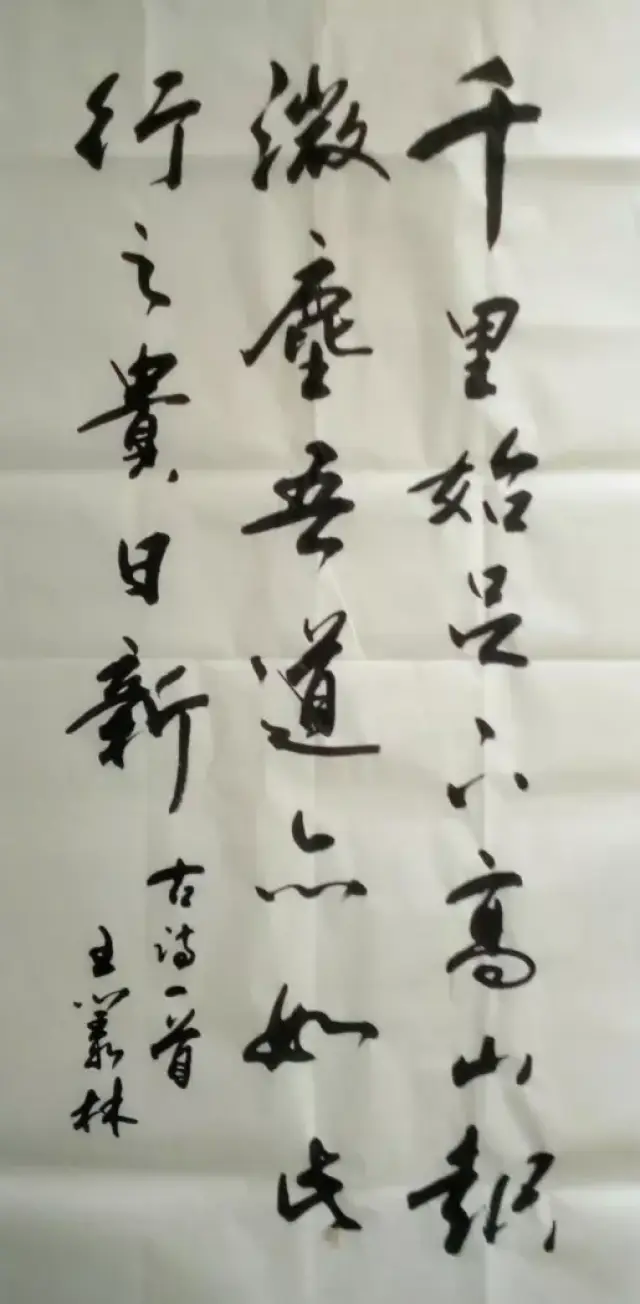 千里始足下高山起
微塵吾道亦如此
行之貴日新
古詩一首
王叢林